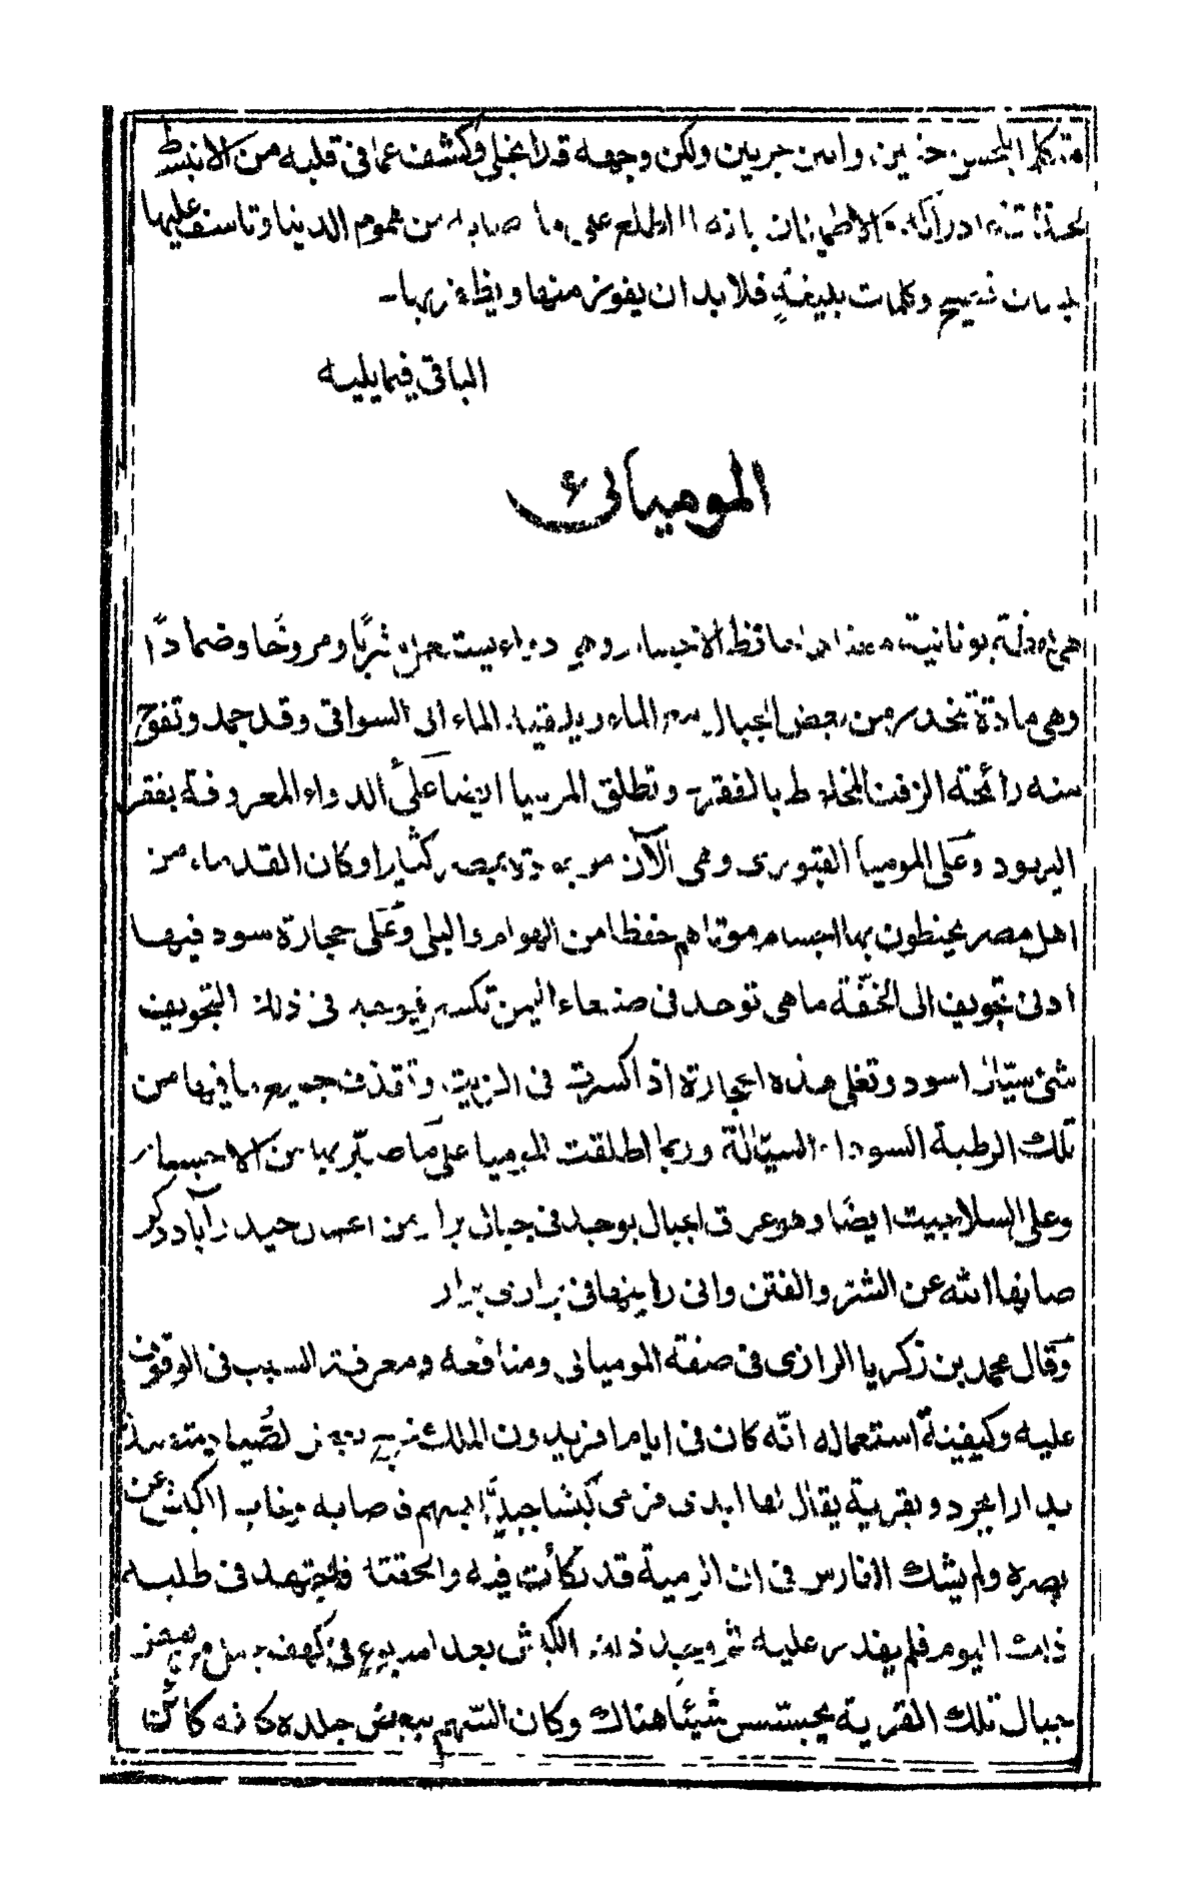 حزين وانين جرين ولكن وجهه قد انجلى وكشف عما فى قلبه من الانبساط
اطلع على ما صابه من هموم الدنيا وتاسف عليها
وكلمات بليغة فلا بد ان يفوز منها ويظفر بها۔
الباقى فيما يليه
الموميائى
هى لفظة يونانية معناها حافظ الاجساد وهى دواء يستعمل شربًا ومروخًا وضمادًا
وهى مادة تنحدر من بعض الجبال مع الماء ويلقيها الماء الى السواقى وقد جمد وتفوح
منه رائحة الزفت المخلوط بالقفر وتطلق المرميا ايضا على الدواء المعروف بقفر
اليهود وعلى الموميا القبورى وهى الآن موجودة بمصر كثيرا وكان القدماء من
اهل مصر يحنطون بها اجسام موتاهم حفظا من الهوام والبلى وعلى حجارة سود فيها
ادنى تجويف الى الخفّة ماهى توجد فى صنعاء اليمن تكسر فيوجد فى ذلك التجويف
شئ سيّال اسود وتغلى هذه الحجارة اذا كسرت فى الزيت وتقذف جميع ما فيها من
تلك الرطبة السوداء السيّالة وربما اطلقت الموميا على ما صبّر بها من الاجساد
وعلى السلاجيت ايضًا وهو عرق الجبال يوجد فى جبال برار من حيدرآباد دكن
صانها الله عن الشر والفتن وانى رايتها فى برارى برار
وقال محمد بن زكريا الرازى فى صفة الموميائى ومنافعه ومعرفة السبب فى الوقوف
عليه وكيفية استعماله انّه كان فى ايام افريدون الملك خرج بعض
بدارابجرد وبقرية يقال لها ابدى فرمى كبشا جبليًّا بسهم فاصابه وغاب الكبش عن
بصره ولم يشك الفارس فى ان الرمية قد نكأت فيه والحقته فاجتهد فى طلبه
ذلك اليوم فلم يقدر عليه ثم وجد ذلك الكبش بعد اسبوع فى كهف جبل من بعض
جبال تلك القرية يحبسّس شيئًا هناك وكان السّهم ببعض جلده كانه كانت